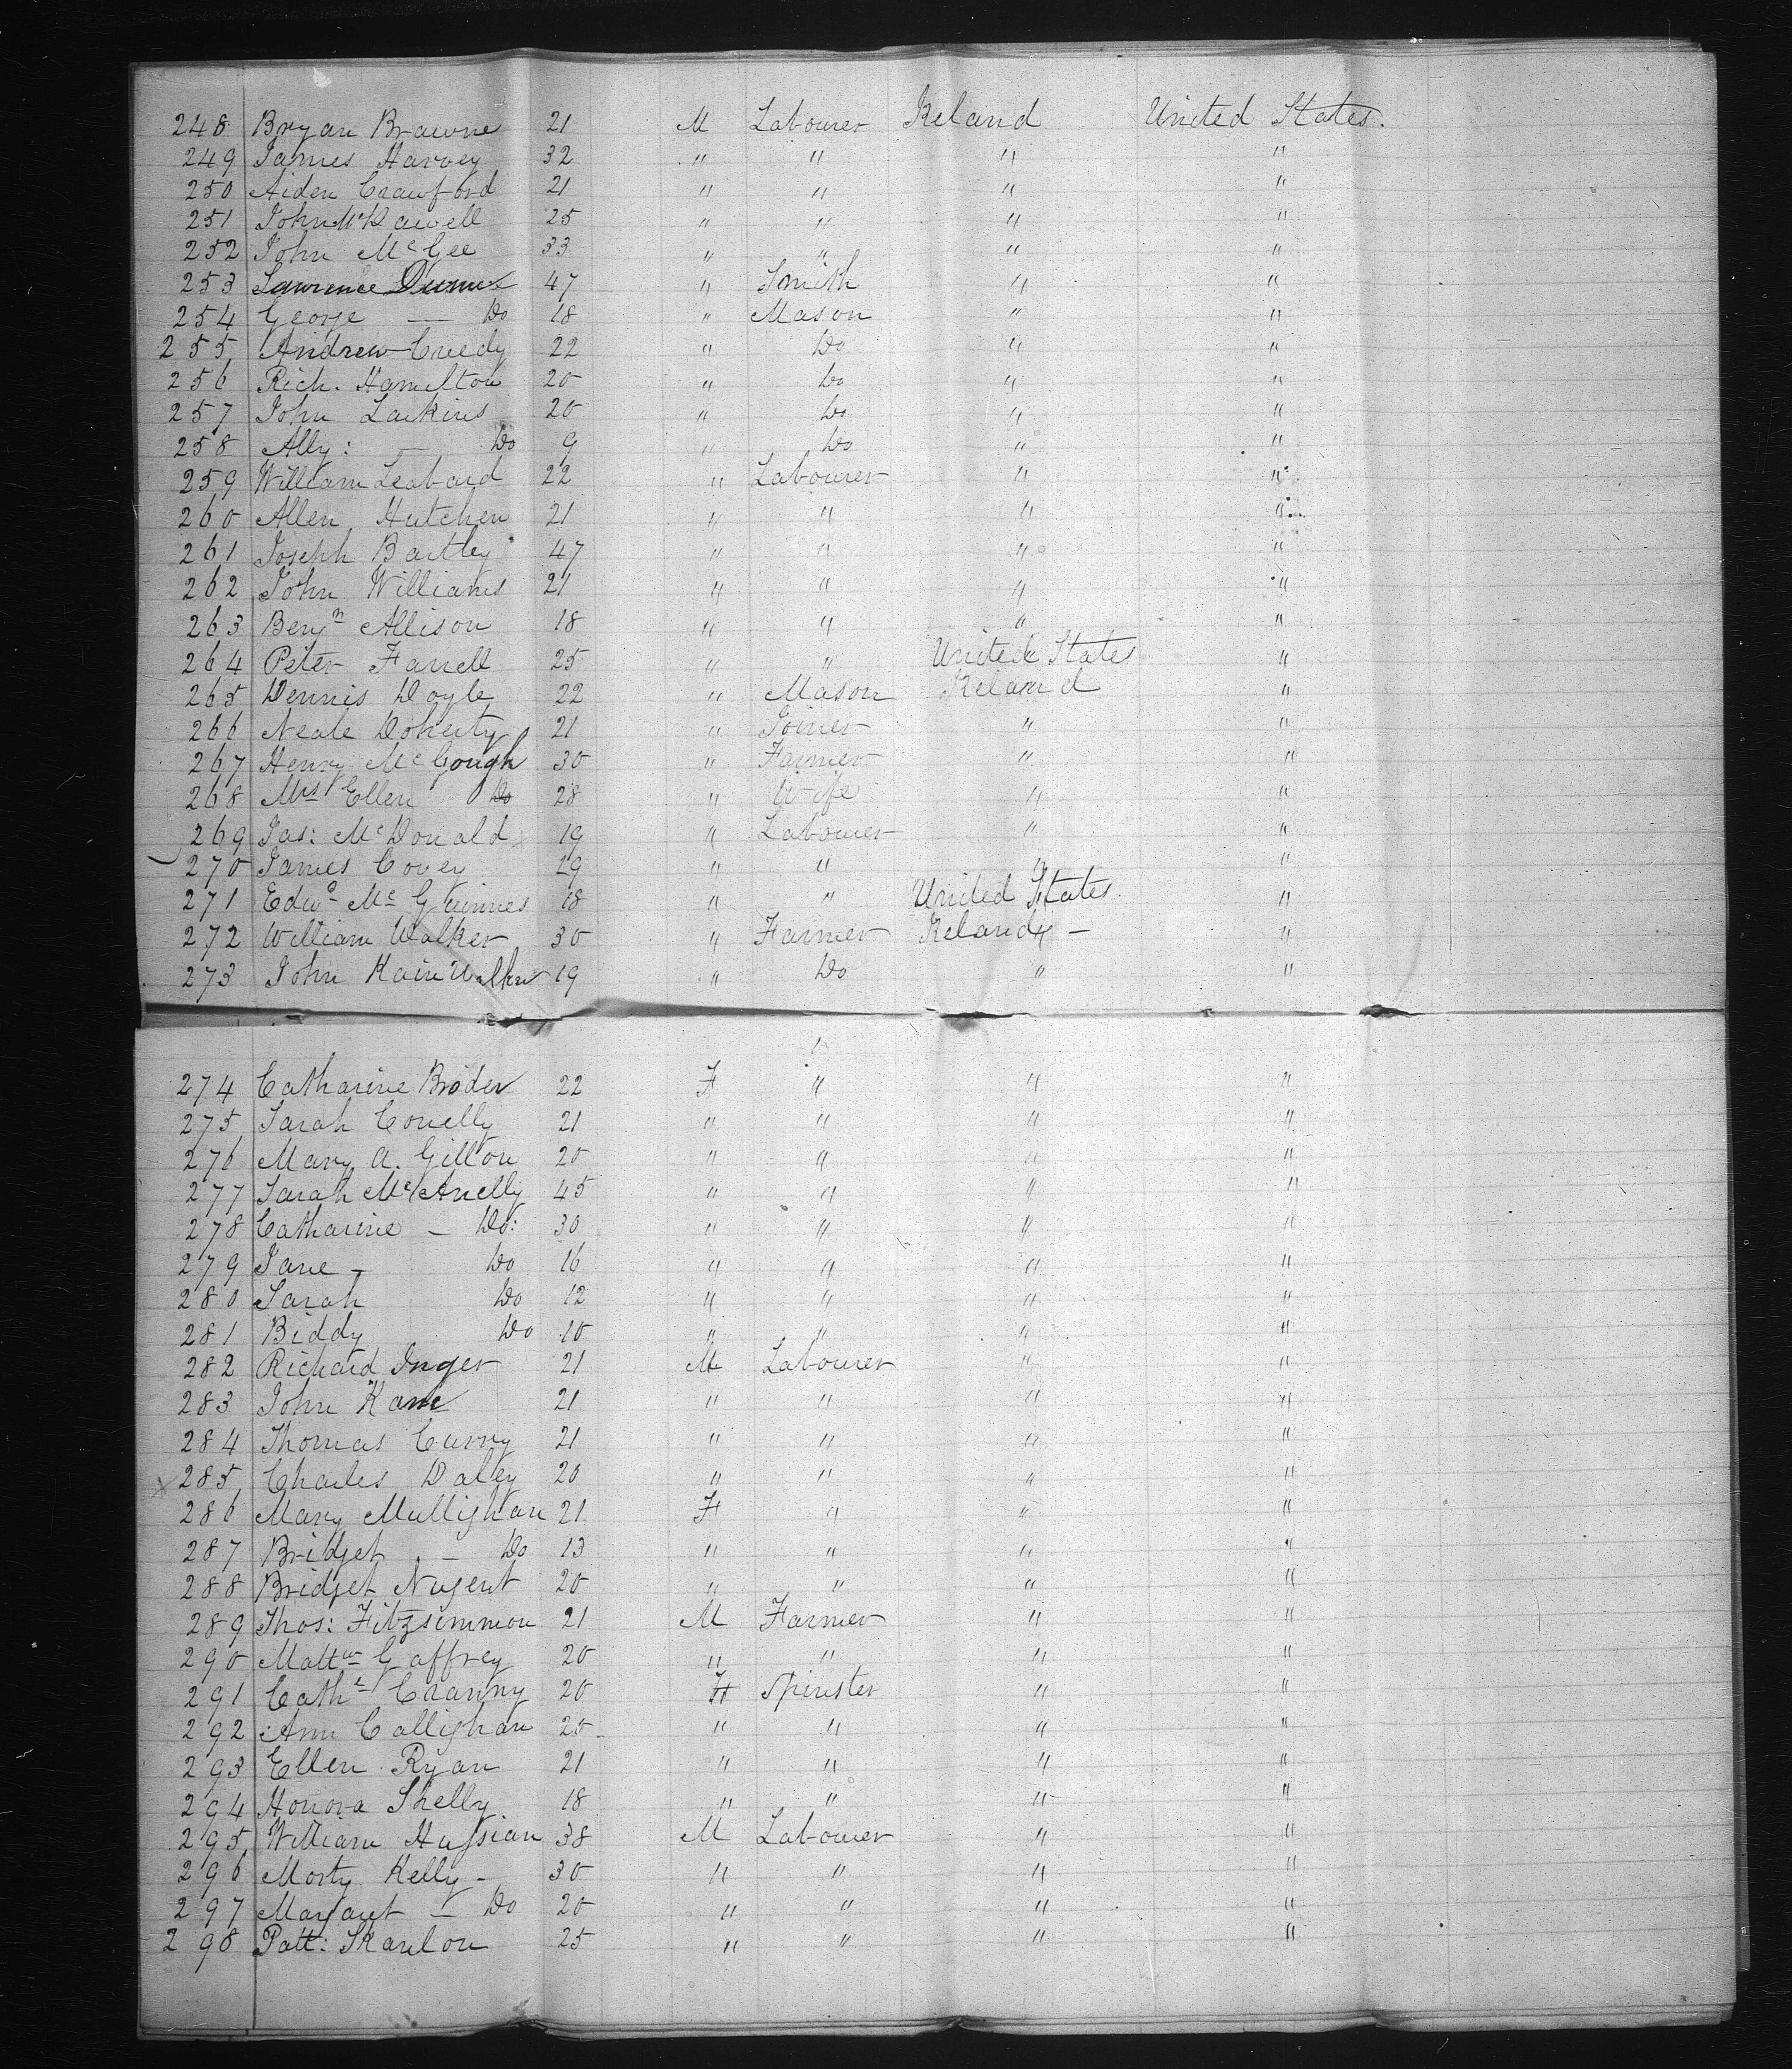 248 Bryan Browne 21 M Labourer Ireland United States.
249 James Harvey 32 " " " "
250 Aiden Crawford 21 " " " "
251 John 25 " " " "
252 John McGee 33 " " " "
253 Lawrence Dunne 47 " Smith " "
254 George — Do 18 " Mason " "
255 Andrew Creedy 22 " Do " "
256 Rich. Hamilton 20 " Do " "
257 John Larkins 20 " Do " "
258 Ally: — Do 9 " Do " "
259 William 22 " Labourer " "
260 Allen Hutchen 21 " " " "
261 Joseph Bartley 47 " " " "
262 John Williams 21 " " " "
263 Benjn Allison 18 " " " "
264 Peter Farrell 25 " " United States "
265 Dennis Doyle 22 " Mason Ireland "
266 Neale Doherty 21 " Joiner " "
267 Henry McGough 30 " Farmer " "
268 Mrs Ellen Do 28 " Wife " "
269 Jas: McDonald 19 " Labourer " "
270 James Covey 19 " " " "
271 Edwd McGuinnes 18 " " United States "
272 William Walker 30 " Farmer Ireland " — "
273 John Kain Walker 19 " Do " "
274 Catharine Broder 22 F " " "
275 Sarah Conelly 21 " " " "
276 Mary A. Gillon 20 " " " "
277 Sarah McAnelly 45 " " " "
278 Catharine — Do: 30 " " " "
279 Jane — Do 16 " " " "
280 Sarah Do 12 " " " "
281 Biddy Do 10 " " " "
282 Richard Inger 21 M Labourer " "
283 John Kane 21 " " " "
284 Thomas Curry 21 " " " "
x 285 Charles Daley 20 " " " "
286 Mary Mullighan 21 F " " "
287 Bridget — Do 13 " " " "
288 Bridget Nugent 20 " " " "
289 Thos: Fitzsimmon 21 M Farmer " "
290 Mattw Gaffrey 20 " " " "
291 Cathe Cranny 20 F Spinster " "
292 Ann Callighan 20 " " " "
293 Ellen Ryan 21 " " " "
294 Honora Shelly 18 " " " "
295 William Hussian 38 M Labourer " "
296 Morty Kelly — 30 " " " "
297 Margaret — Do 20 " " " "
298 Patt: Skanlon 25 " " " "